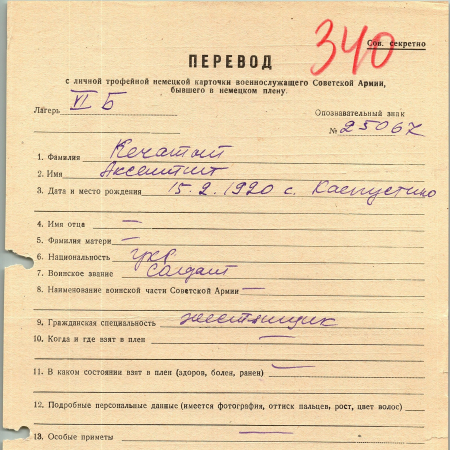 340
Сов. секретно
ПЕРЕВОД
с личной трофейной немецкой карточки военнослужащего Советской Армии,
бывшего в немецком плену.
Лагерь VI Б
Опознавательный знак
№ 25067
1. Фамилия
2. Имя
3. Дата и место рождения 15.2.1920 с.
4. Имя отца —
5. Фамилия матери —
6. Национальность укр
7. Воинское звание Солдат
8. Наименование воинской части Советской Армии —
9. Гражданская специальность жестянщик
10. Когда и где взят в плен —
11. В каком состоянии взят в плен (здоров, болен, ранен) —
12. Подробные персональные данные (имеется фотография, оттиск пальцев, рост, цвет волос)
13. Особые приметы —